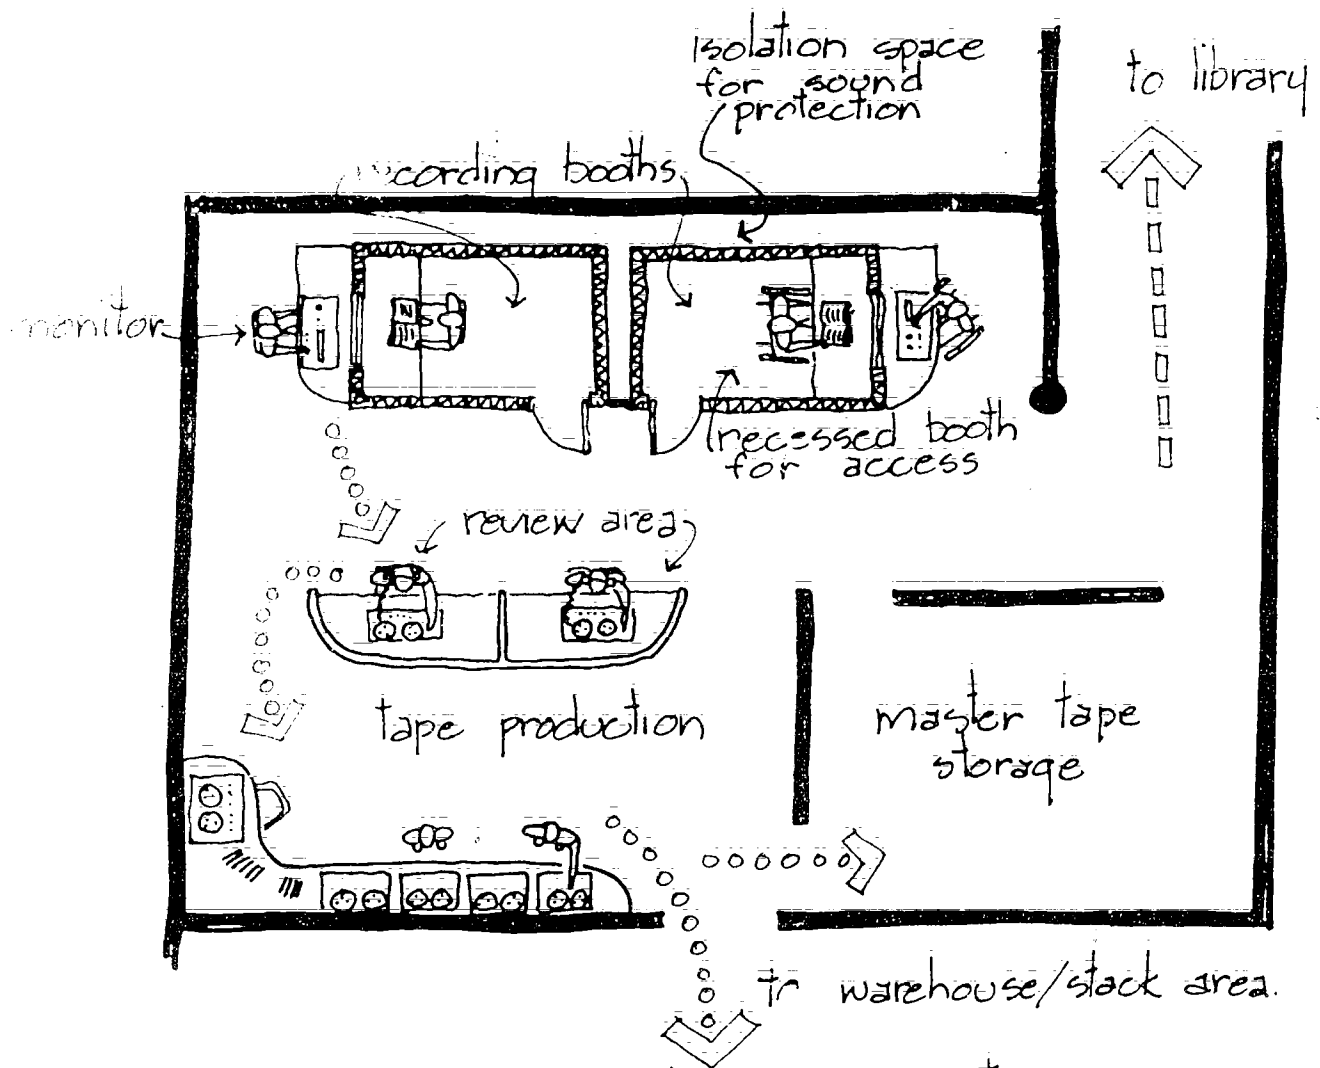 isolation space
for sound
protection
to library
recording booths
monitor
recessed booth
for access
review area
tape production
master tape
storage
to warehouse/stack area.